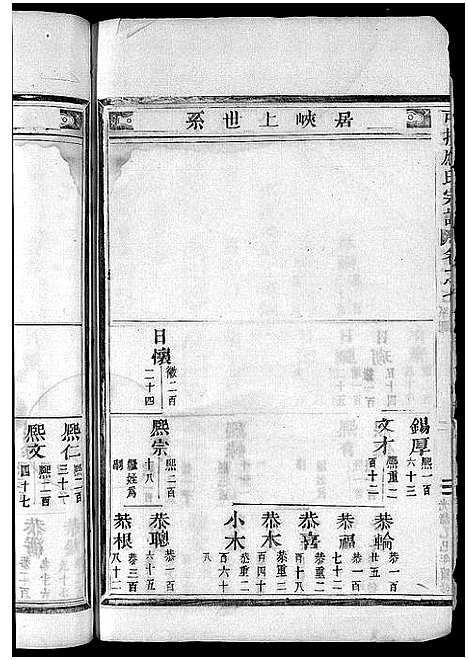 居峽上世系
錫厚
熙一百
六十三
文才
熙重二
百十二
恭輪
恭一百
廿五
恭福
恭一百
七十二
恭喜
恭重二
百十八
恭木
恭重二
百四十
小木
恭二
百六十
八
日懷
徽二百
二十四
熙宗
熙二百
十八
繼姪為
嗣
恭聰
恭一百
六十五
恭根
恭三百
八十二
熙仁
熙二百
三十一
熙文
熙二百
四十七